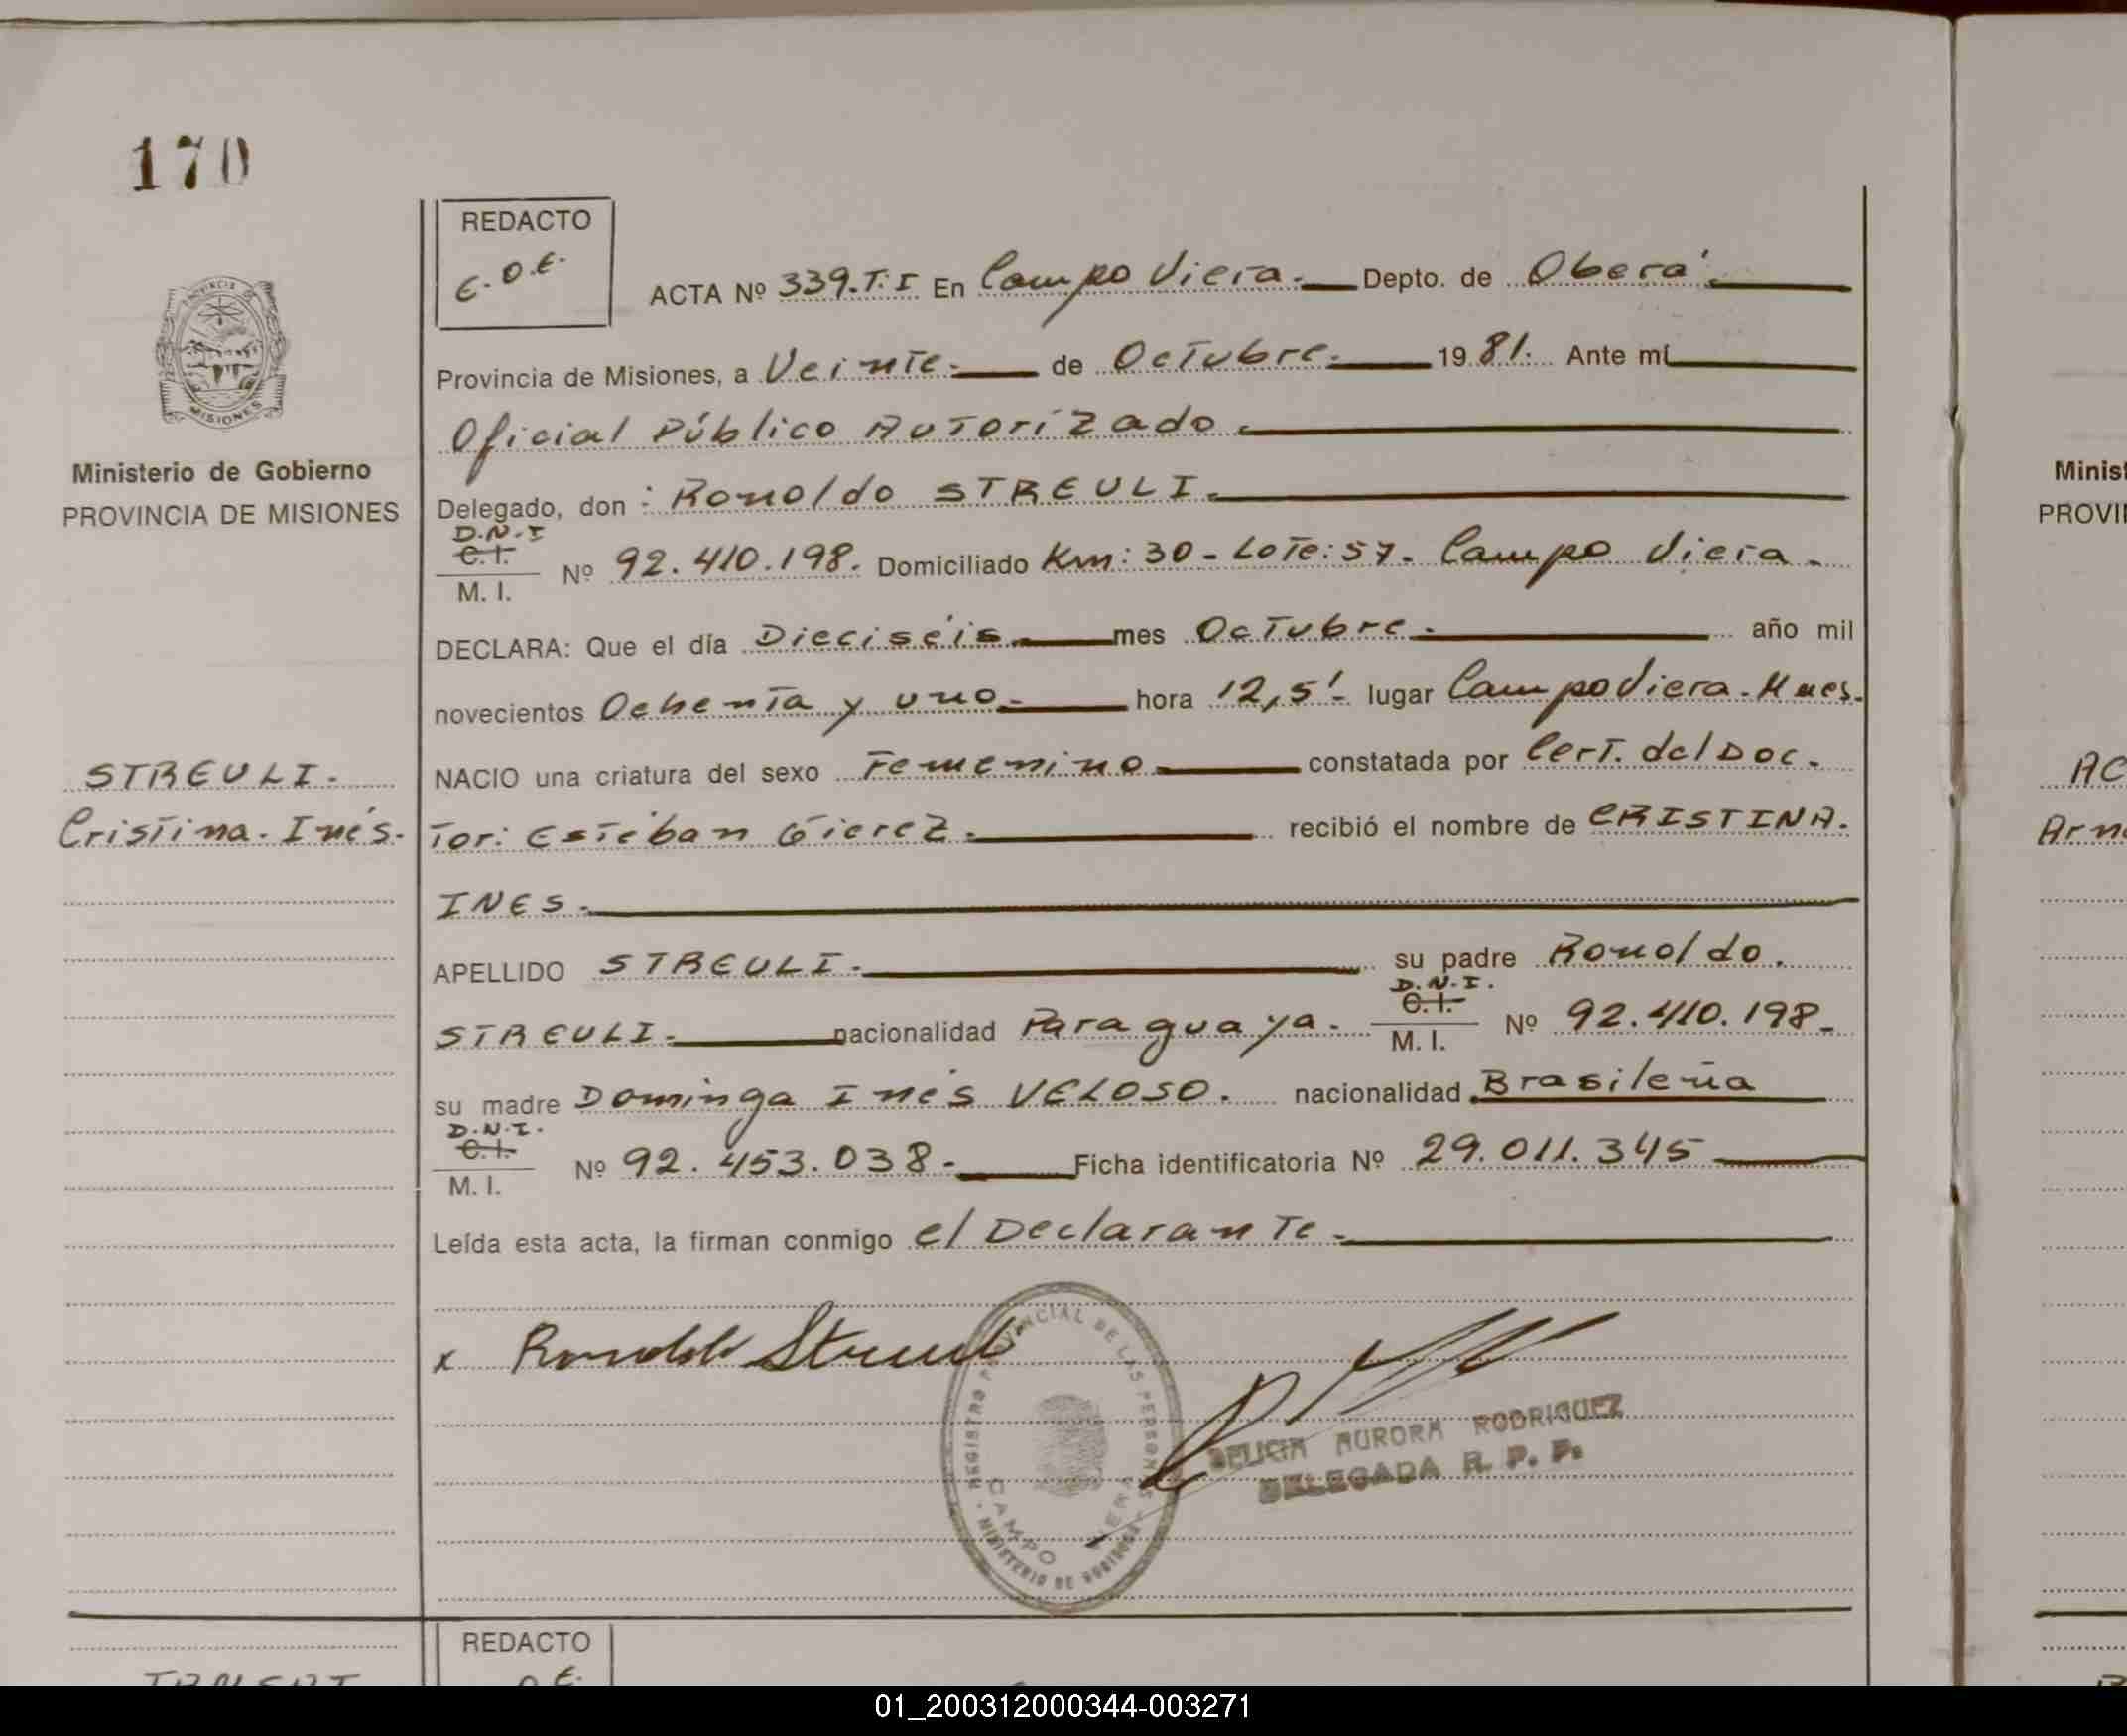 170
REDACTO
E.O.E.
ACTA Nº 339.T.I En Campo Viera. Depto. de Oberá.
Provincia de Misiones, a Veinte. de Octubre. 1981. Ante mí
Oficial Público Autorizado.
Ministerio de Gobierno
PROVINCIA DE MISIONES
MISIONES
Delegado, don : Ronoldo STREULI.
D.N.I
C.I.
M. I.
Nº 92.410.198. Domiciliado Km: 30 - Lote: 57. Campo Viera.
DECLARA: Que el día Dieciséis. mes Octubre. año mil
novecientos Ochenta y uno. hora 12,5'. lugar Campo Viera. Mnes.
STREULI.
Cristina. Inés.
NACIO una criatura del sexo Femenino constatada por Cert. del Doc.
tor: Esteban Gierez. recibió el nombre de CRISTINA.
INES.
APELLIDO STREULI. su padre Ronoldo.
STREULI. nacionalidad Paraguaya.
D.N.I.
C.I.
M. I.
Nº 92.410.198.
su madre Dominga Inés VELOSO. nacionalidad Brasileña
D.N.I.
C.I.
M. I.
Nº 92.453.038. Ficha identificatoria Nº 29.011.345
Leída esta acta, la firman conmigo el Declarante.
x Ronoldo Streuli
REGISTRO PROVINCIAL DE LAS PERSONAS
CAMPO VIERA
MINISTERIO DE GOBIERNO
DELICIA AURORA RODRIGUEZ
DELEGADA R. P. P.
REDACTO
Minist
PROVIN
AC
Arn
01_200312000344-003271